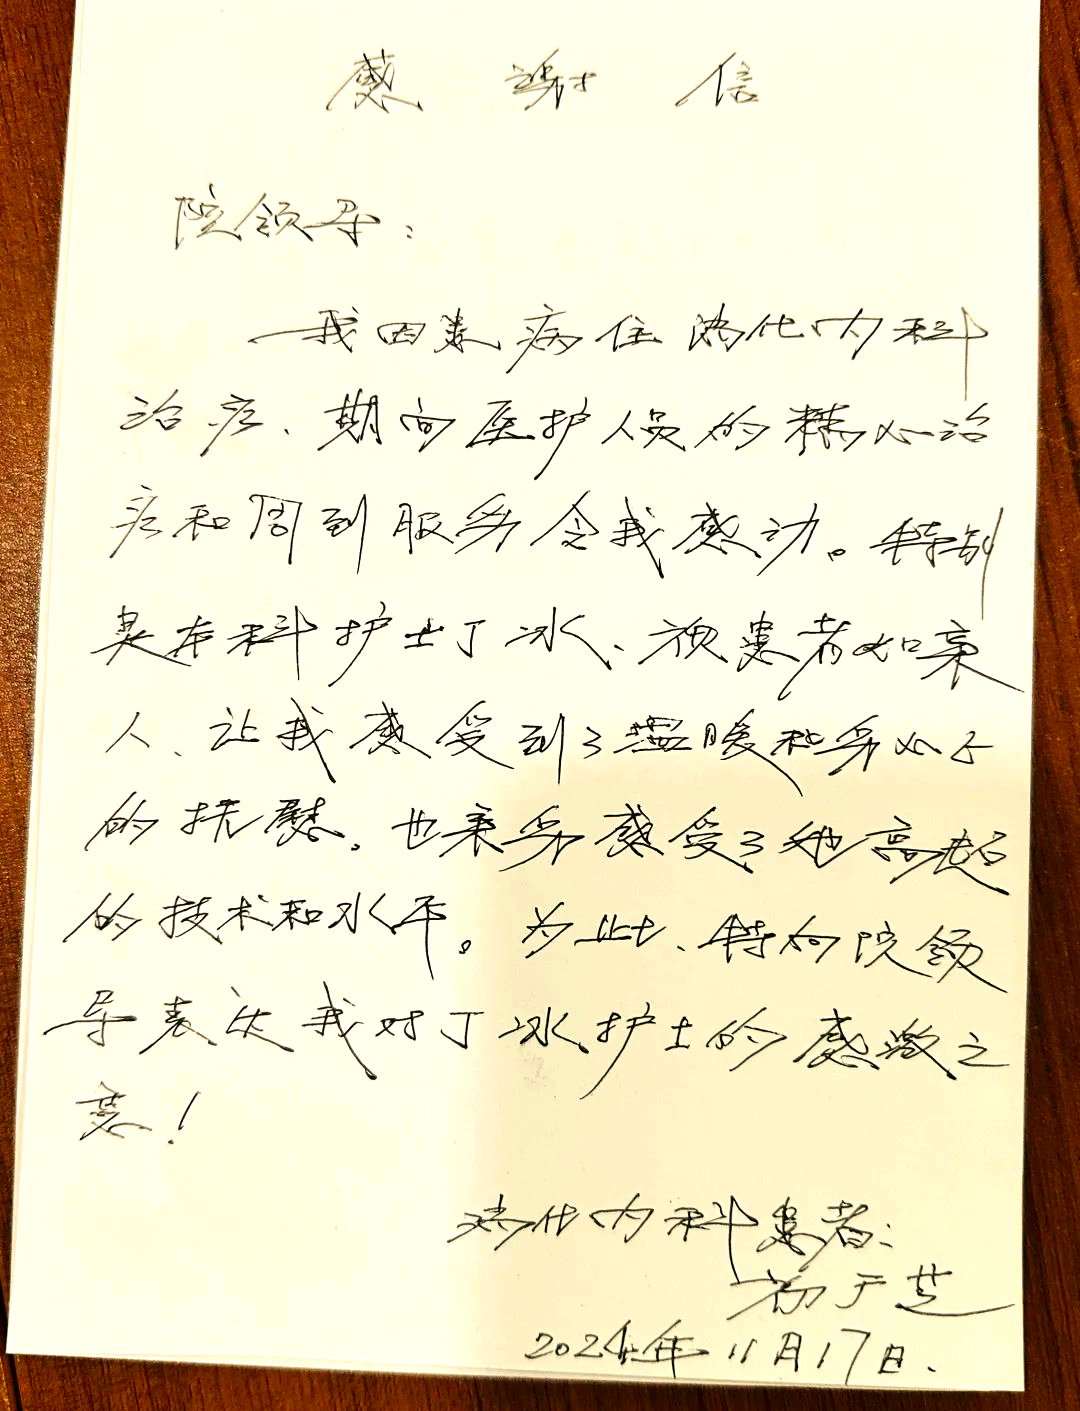 感谢信
院领导：
我因患病住消化内科
治疗、期间医护人员的精心治
疗和周到服务令我感动。特别
是本科护士丁冰、视患者如亲
人、让我感受到了温暖和身心上
的抚慰。也亲身感受了她高超
的技术和水平。为此、特向院领
导表达我对丁冰护士的感激之
意！
消化内科患者：
于芝
2024年11月17日.